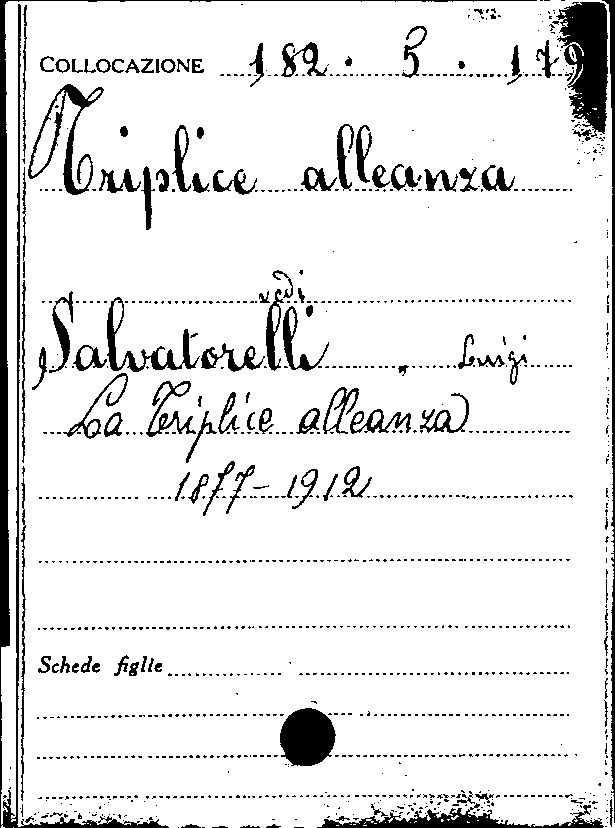 COLLOCAZIONE 182 . 5 . 179
Triplice alleanza
vedi
Salvatorelli , Luigi
La Triplice alleanza
1877-1912
Schede figlie